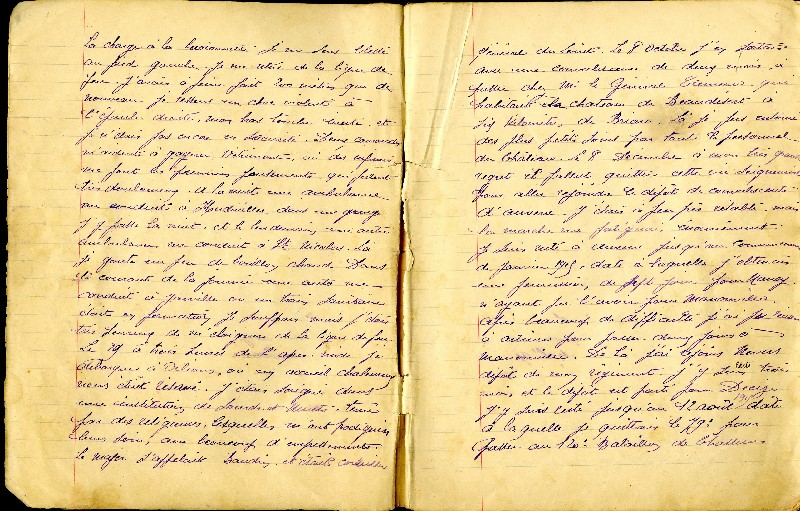 la charge à la baïonnette. Je me sens blessé
au pied gauche. Je me retire de la ligne de
feu. J'avais à peine fait 200 mètres que de
nouveau je ressens un choc violent à
l'épaule droite, mon bras tombe inerte et
je n'étais pas encore en sécurité. Deux camarades
m'aidente à gagner
me font les premiers pansements qui furent
très douloureux. A la nuit une ambulance
me conduit à Haudiviller dans une grange
J'y passe la nuit, et le lendemain une autre
ambulance me conduit à St Nicolas. Là
je goute un peu de bouillon chaud. Dans
le courant de la journée une auto me
conduit à Jarville où un train sanitaire
était en formation, je souffrais mais j'étais
très heureux de m'éloigner de la ligne de feu.
Le 29 à trois heures de l'après-midi je
débarquai à Orléans, où un accueil chaleureux
nous était réservé. J'étais soigné dans
une institution de Sourds et Muets tenue
par des religieuses, lesquelles m'ont prodiguées
leurs soins avec beaucoup d'empressement.
Le major s'appelait Baudin, et était conseiller
Général du Loiret. Le 8 Octobre j'en partais
avec une convalescence de deux mois à
passer chez Mr le qui
habitait le Chateau de Beaudésert à
six kilomètres de Briare. Là je fus entouré
des plus petits soins par tout le personnel
du Château. Le 8 Décembre à mon très grand
regret il fallut quitter cette vie
pour aller rejoindre le dépôt de convalescents
d'Auxerre. J'étais à peu près rétabli mais
la marche me fatiguait énormément.
Je suis resté à Auxerre jusqu'au commencement
de Janvier 1915, date à laquelle j'obtenais
une permission de sept jours pour
n'ayant pu l'avoir pour
Après beaucoup de difficulté j'ai pu
à passer deux jours à
De là j'ai rejoins Nevers
dépôt de mon régiment. J'y suis resté trois
mois et le dépôt est parti pour Decize
J'y suis resté jusqu'au 12 août 1915 date
à laquelle je quittais le 79e pour
passer au 120e Bataillon de Chasseurs